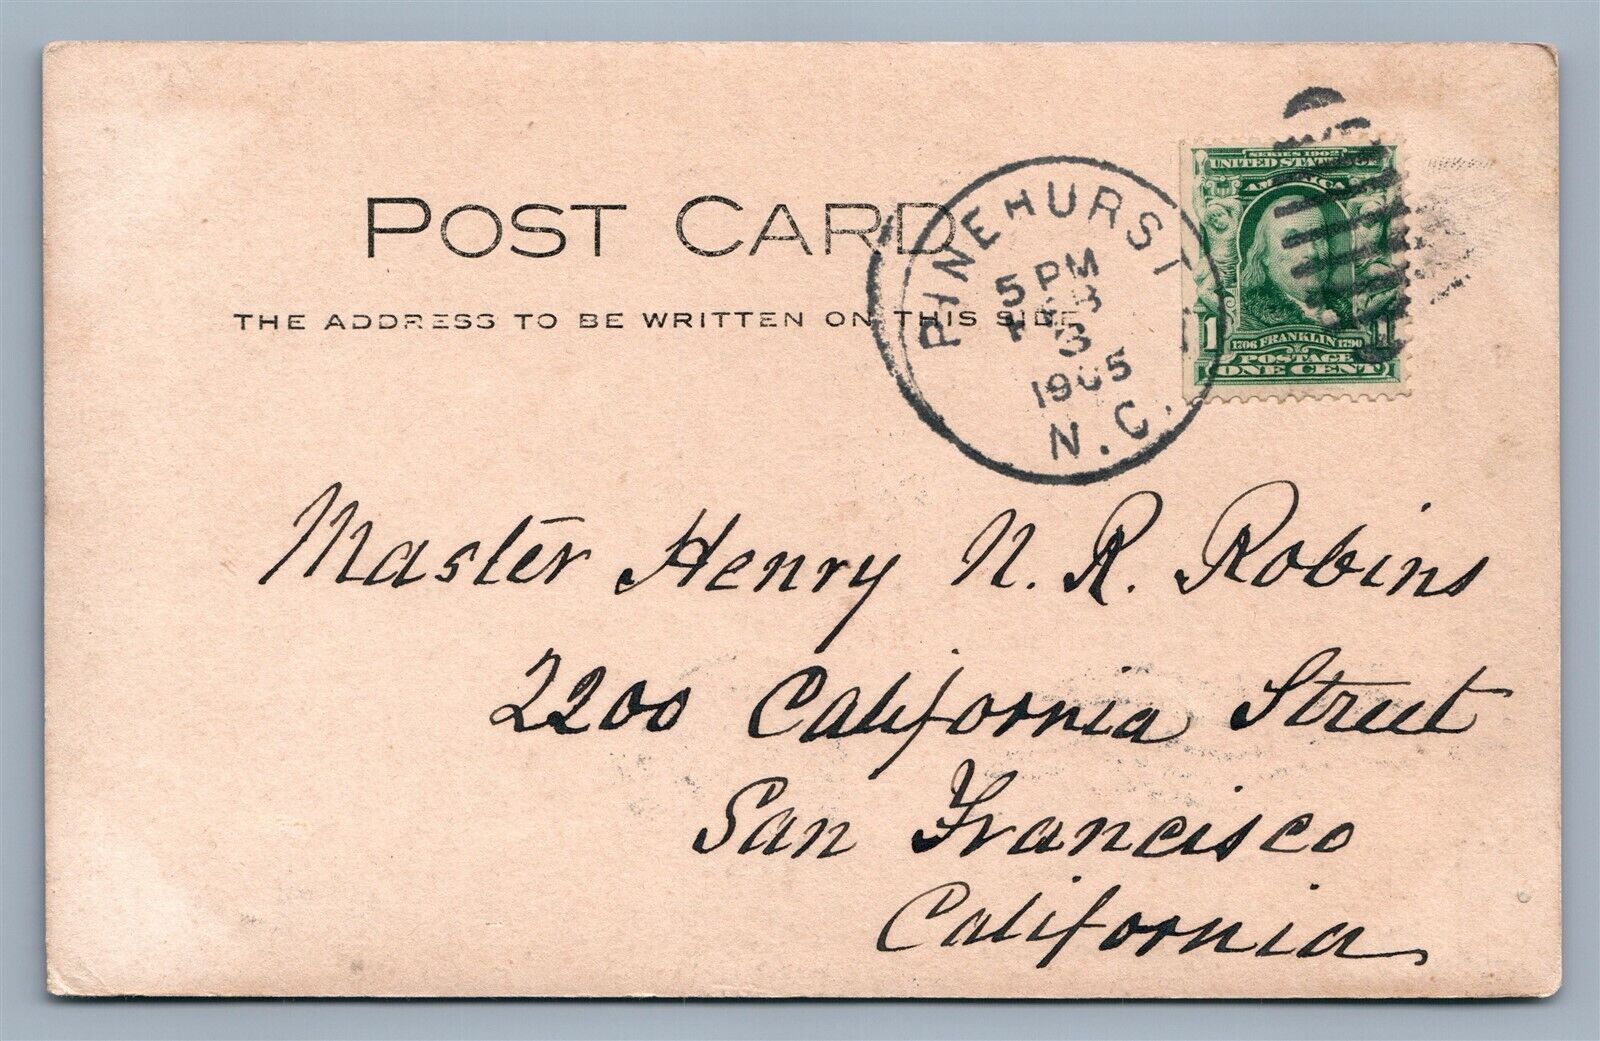 POST CARD
THE ADDRESS TO BE WRITTEN ON THIS SIDE
PINEHURST
5 PM
FEB
3
1905
N.C.
SERIES 1902
UNITED STATES OF
AMERICA
1 1
1706 FRANKLIN 1790
POSTAGE
ONE CENT
Master Henry N. R. Robins
2200 California Street
San Francisco
California